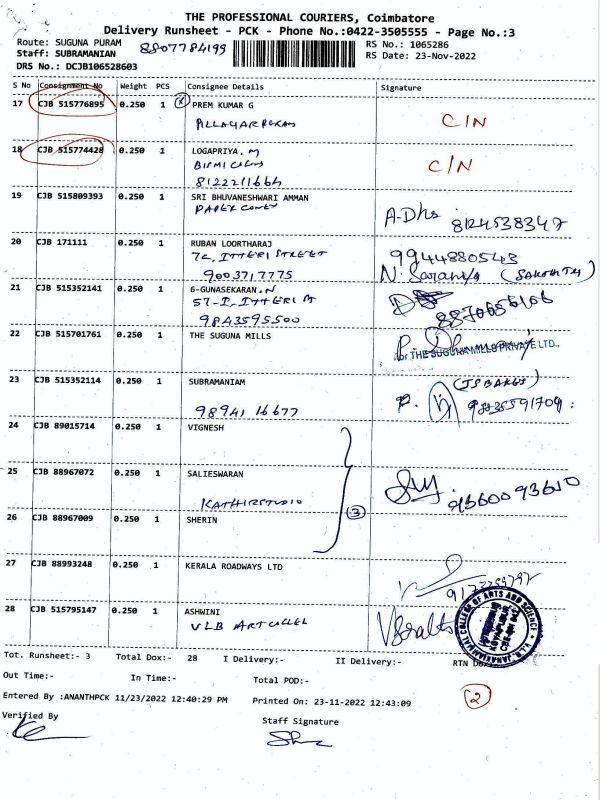 THE PROFESSIONAL COURIERS, Coimbatore
Delivery Runsheet - PCK - Phone No.:0422-3505555 - Page No.:3
Route: SUGUNA PURAM 8807784199 RS No.: 1065286
Staff: SUBRAMANIAN RS Date: 23-Nov-2022
DRS No.: DCJB106528603
S No Consignment No Weight PCS Consignee Details Signature
17 CJB 515776895 0.250 1 PREM KUMAR G
C/N
18 CJB 515774428 0.250 1 LOGAPRIYA. M
C/N
8122211664
19 CJB 515809393 0.250 1 SRI BHUVANESHWARI AMMAN
PAPER CONES
A-Dhs 8124538347
20 CJB 171111 0.250 1 RUBAN LOORTHARAJ
72, ITTERI STREET 9944880543
9003717775 N. Saranya
21 CJB 515352141 0.250 1 G-GUNASEKARAN.N
57-I, ITTERI
8870656166
9843595500
22 CJB 515701761 0.250 1 THE SUGUNA MILLS
for THE SUGUNA MILLS PRIVATE LTD.,
23 CJB 515352114 0.250 1 SUBRAMANIAM
98941 16677
24 CJB 89015714 0.250 1 VIGNESH
25 CJB 88967072 0.250 1 SALIESWARAN
KATHIRSTUDIO 93600 93610
3
26 CJB 88967009 0.250 1 SHERIN
27 CJB 88993248 0.250 1 KERALA ROADWAYS LTD
28 CJB 515795147 0.250 1 ASHWINI
VLB ART COLLEGE
V.L.B. JANAKIAMMAL COLLEGE OF ARTS AND SCIENCE
Tot. Runsheet:- 3 Total Dox:- 28 I Delivery:- II Delivery:- RTN
Out Time:- In Time:- Total POD:-
Entered By :ANANTHPCK 11/23/2022 12:40:29 PM Printed On: 23-11-2022 12:43:09
2
Verified By Staff Signature